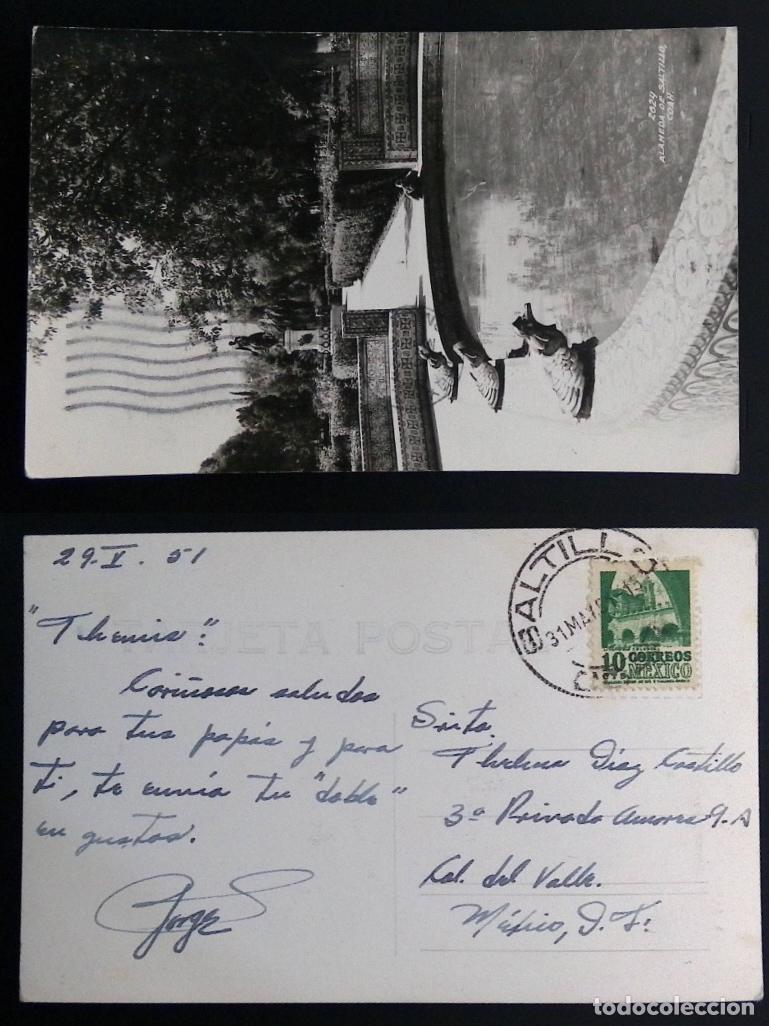 2024
ALAMEDA DE SALTILLO,
COAH.
29-V. 51
TARJETA POSTAL
"Themis":
Cariñosos saludos
para tus papás y para
ti, te envía tu "doble"
en gustos.
Jorge
SALTILLO
31 MAY
10 CORREOS
CTS MÉXICO
Srita.
Thelma Díaz Castillo
3ª Privada Amores 9-A
Col. del Valle.
México, D.F.
todocoleccion